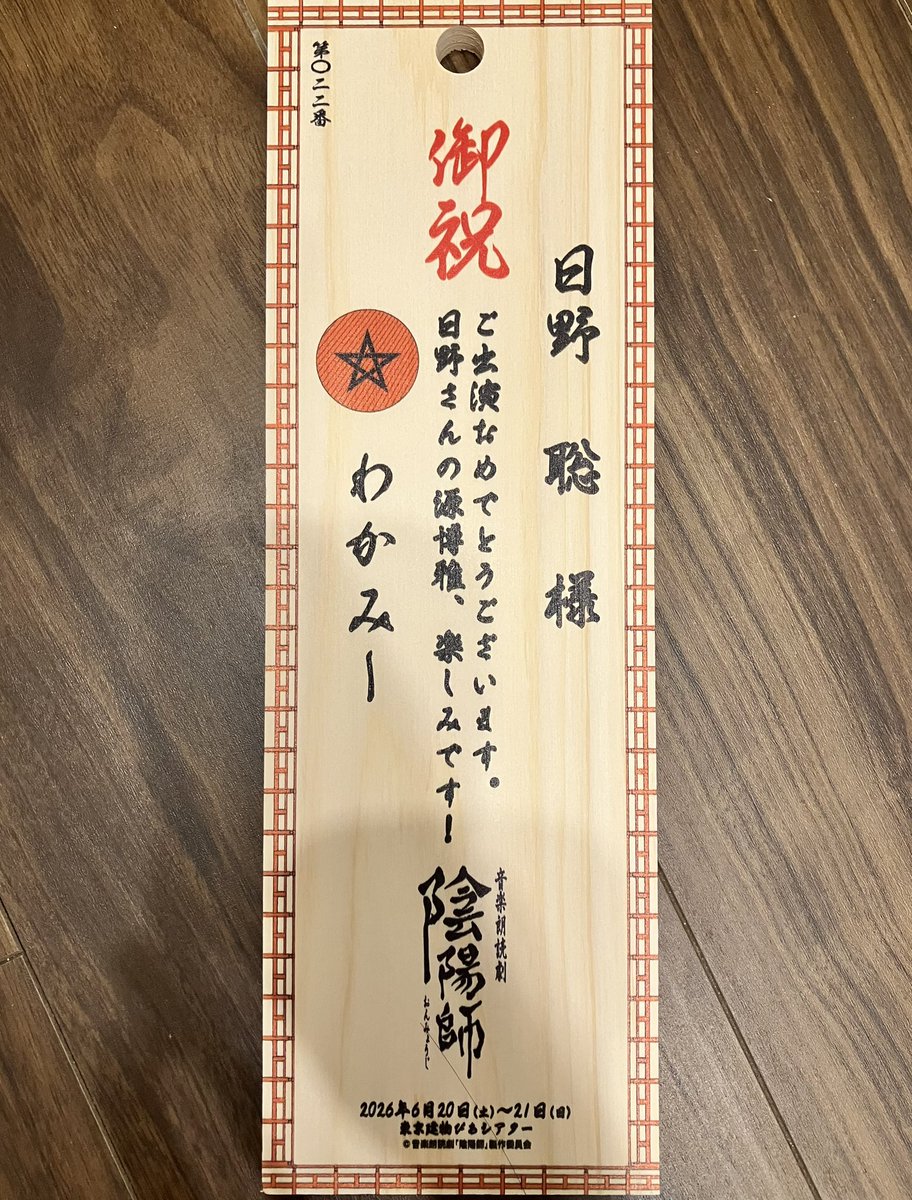 第〇二二番
御祝
日野 聡 様
ご出演おめでとうございます。
日野さんの源博雅、楽しみです!
わかみー
音楽朗読劇
陰陽師
おんみょうじ
2026年6月20日(土)〜21日(日)
東京建物ぴあシアター
© 音楽朗読劇「陰陽師」製作委員会